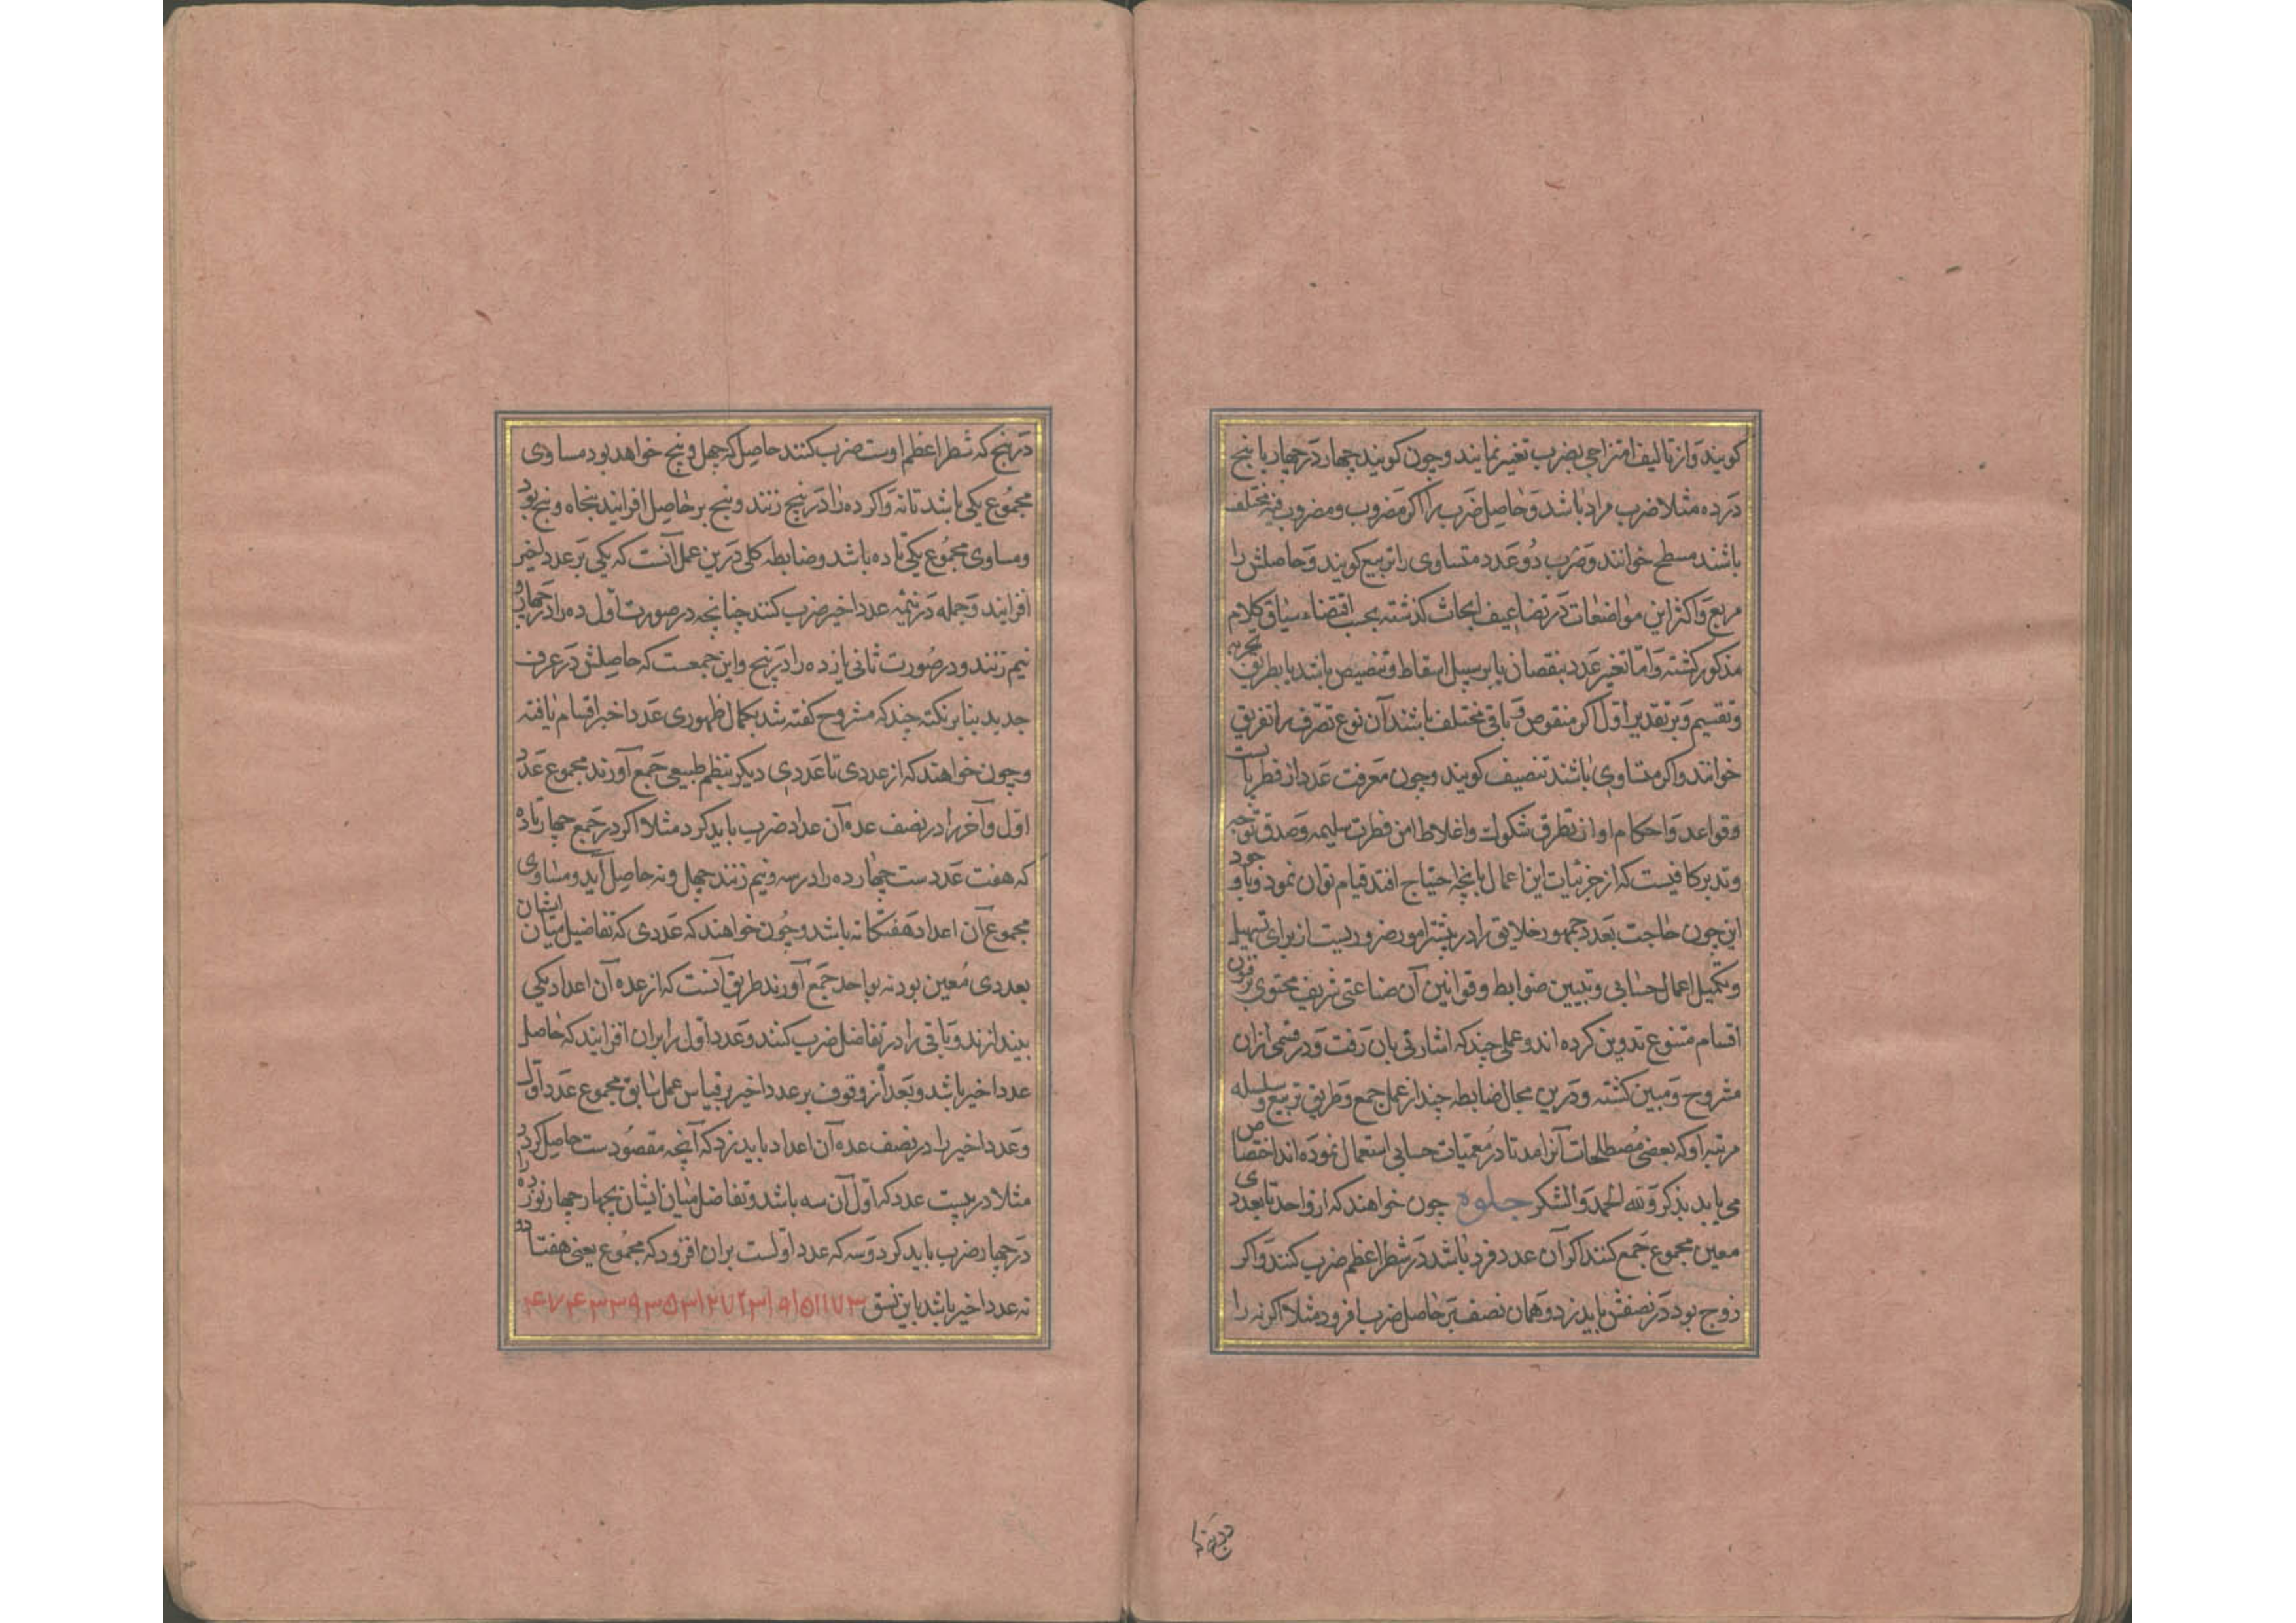 کویند واز تالیف امتزاجی بضرب تغیر نمایند و چون کویند چهار در چهار یا پنج
در ده مثلا ضرب مراد باشد و حاصل ضرب را اکر مضروب و مضروب فیه مختلف
باشند مسطح خوانند و ضرب دو عدد متساوی را تربیع کویند و حاصلش را
مربع و اکثر این مواضعات در تضاعیف ابحاث کذشته بحسب اقتضاء سیاق کلام
مذکور کشته و اما تغیر عدد بنقصان یا بر سبیل اسقاط و تنصیص باشد یا بطریق تجزیه
و تقسیم و بر تقدیر اول اکر منقوص و باقی مختلف باشند آن نوع تصرف را تفریق
خوانند و اکر متساوی باشند تنصیف کویند و چون معرفت عدد از فطریاتست
و قواعد و احکام او از تطرق شکوک و اغلاط امن فطرت سلیمه و صدق توجه
و تدبر کافیست که از جزئیات این اعمال بانچه احتیاج افتد قیام توان نمود و با وجود
این چون حاجت بعدد جمهور خلایق را در بیشتر امور ضروریست از برای تسهیل
و تکمیل اعمال حسابی و تبیین ضوابط و قوانین آن صناعتی شریف محتوی بر فنون
اقسام متنوع تدوین کرده اند و عملی چند که اشارتی بان رفت و در قسمی ازان
مشروح و مبین کشته و درین مجال ضابطه چند از عمل جمع و طریق تربیع و سلسله
مرتبه او که بعضی مصطلحات آنرا عمدتا در معمیات حسابی استعمال نموده اند اختصاص
می یابد بذکر و لله الحمد والشکر جلوه چون خواهند که از واحد تا بعددی
معین مجموع جمع کنند اکر آن عدد فرد باشد در شطر اعظم ضرب کنند و اکر
زوج بود در نصفش باید زد و همان نصف بر حاصل ضرب افزود مثلا اکر نه را
در پنج
در پنج که شطر اعظم اوست ضرب کنند حاصل که چهل و پنج خواهد بود مساوی
مجموع یکی باشد تا نه و اکر ده را در پنج زنند و پنج بر حاصل افزایند پنجاه و پنج بود
و مساوی مجموع یکی تا ده باشد و ضابطه کلی درین عمل آنست که یکی بر عدد اخیر
افزایند و جمله در نیمه عدد اخیر ضرب کنند چنانچه در صورت اول ده را در چهار و
نیم زنند و در صورت ثانی یازده را در پنج و این جمعست که حاصلش در عرف
جدید بنابر نکته چند که مشروح کفته شد بکمال ظهوری عدد اخیر اقسام یافته
و چون خواهند که از عددی تا عددی دیکر بنظم طبیعی جمع آورند مجموع عدد
اول و آخر را در نصف عده آن عداد ضرب باید کرد مثلا اکر در جمع چهار تا ده
که هفت عددست چهارده را در سه و نیم زنند چهل و نه حاصل آید و مساوی
مجموع آن اعداد هفتکانه باشد و چون خواهند که عددی که تفاضیل میان ایشان
بعددی معین بود نه بواحد جمع آورند طریق آنست که از عده آن اعداد یکی
بیندازند و باقی را در تفاضل ضرب کنند و عدد اول را بران افزایند که حاصل
عدد اخیر باشد و بعد از وقوف بر عدد اخیر بر قیاس عمل سابق مجموع عدد اول
و عدد اخیر را در نصف عده آن اعداد باید زد که آنچه مقصودست حاصل کردد
مثلا در بیست عدد که اول آن سه باشد و تفاضل میان ایشان بچهار چهار نوزده را
در چهار ضرب باید کرد و سه که عدد اولست بران افزود که مجموع یعنی هفتاد و
نه عدد اخیر باشد باین نسق ۳ ۷ ۱۱ ۱۵ ۱۹ ۲۳ ۲۷ ۳۱ ۳۵ ۳۹ ۴۳ ۴۷